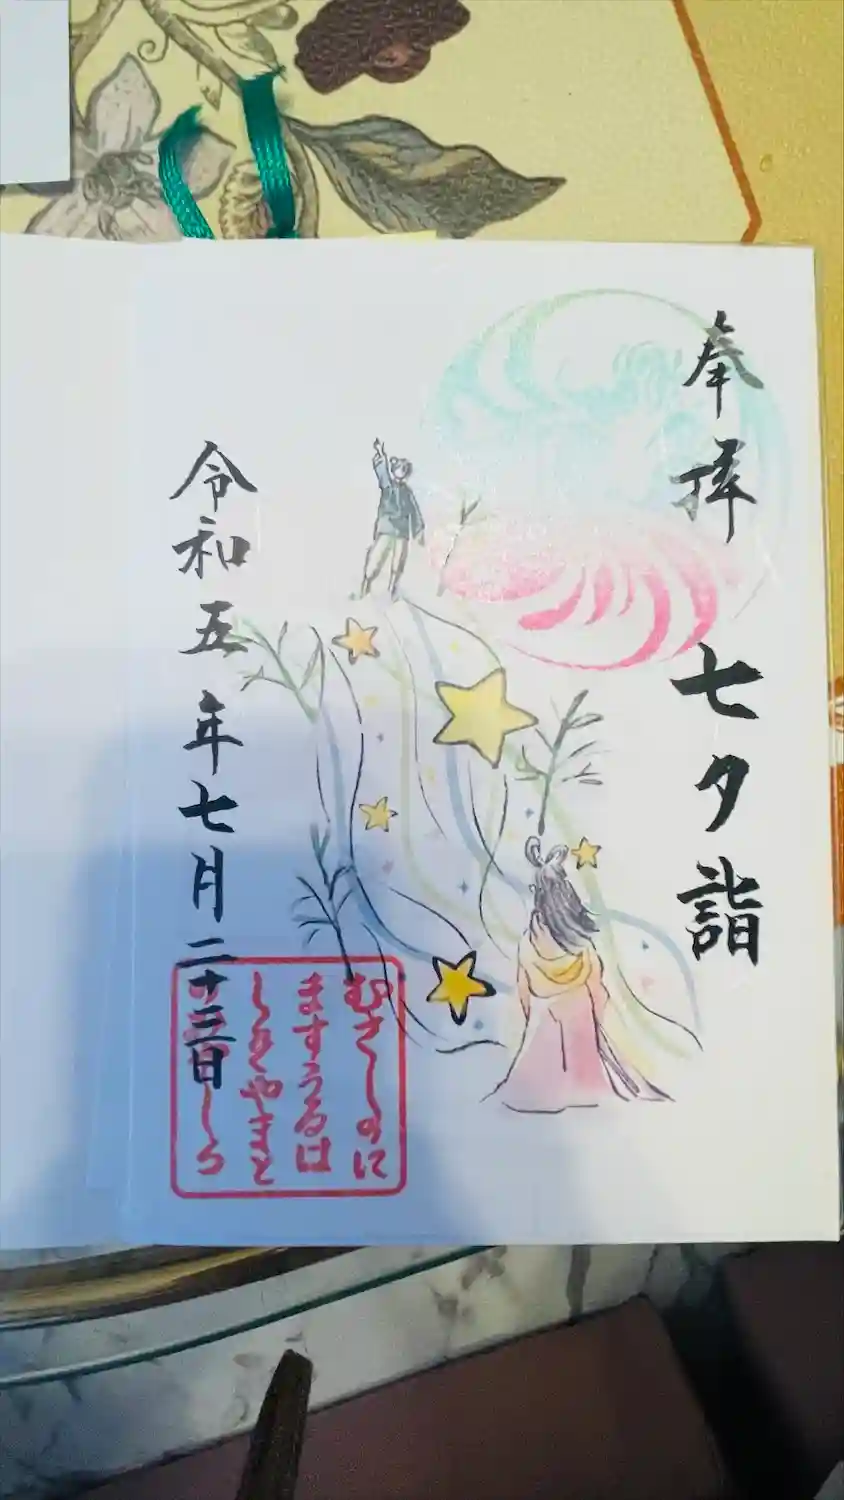 奉拝
七夕詣
令和五年七月二十三日
むさしのに
ますうるは
しきやまと